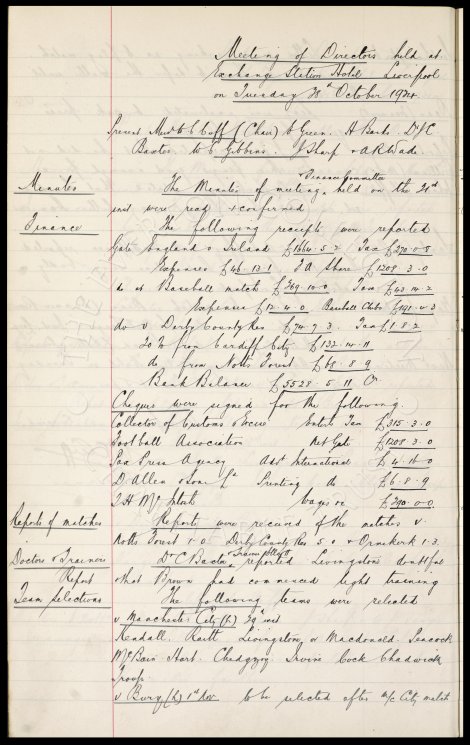 Meeting of Directors held at
Exchange Station Hotel Liverpool
on Tuesday 28th October 1924
Present Messrs W C Cuff (Chair) W Green. A Banks. Dr J C
Baxter. W C Gibbins. J Sharp & A R Wade.
Minutes
The Minutes of meeting & Finance Committee held on the 21st
inst were read & confirmed.
Finance
The following receipts were reported
Gate England v Ireland £1664.5.2 Tax £370.0.8
Expenses £46.13.1 F A Share £1208.3.0
do at Baseball match £369.10.0 Tax £43.14.2
Expenses £12.4.0 Baseball Clubs
do v Derby County Res £74.9.3. Tax £1.8.2
from Cardiff City £132.14.11
do from Notts Forest £68.8.9
Bank Balance £5528.5.11
Cheques were signed for the following
Collector of Customs & Excise Ents Tax £315.3.0
Football Association Net Gate £1208.3.0
Press Agency Advt International
D. Allen & Sons Ld Printing do £6.8.9
Wages &c £390.0.0
Reports of matches
Reports were received of the matches v
Notts Forest 1.0 Derby County Res 5.0 & Ormskirk 1.3.
Doctors & Trainers
Report
Dr C Baxter & reported Livingstone doubtful
& that Brown had commenced light training
Team Selections
The following teams were selected
v Manchester City (h) 29th inst
Kendall. Raitt Livingstone or Macdonald. Peacock
McBain. Hart. Chedgzoy. Irvine Cock Chadwick
Troup.
v Bury (h) 1st Nov to be selected after M/c City match